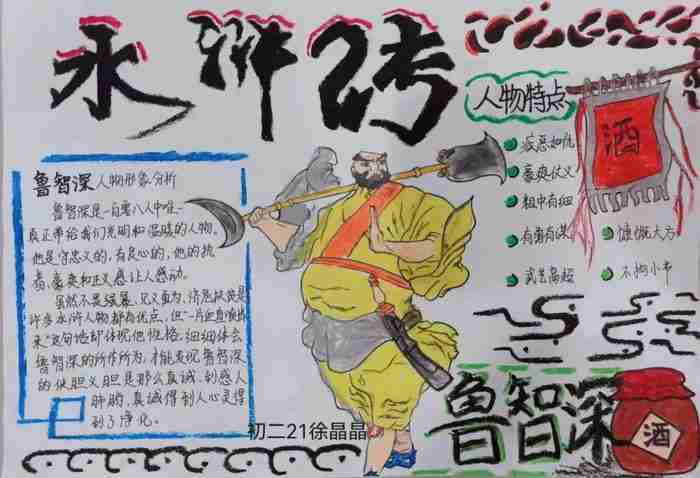 水浒传
人物特点
酒
疾恶如仇
豪爽仗义
粗中有细
有勇有谋
慷慨大方
武艺高超
不拘小节
鲁智深人物形象分析
鲁智深是一百零八人中唯一
真正带给我们光明和温暖的人物。
他是守忠义的,有良心的,他的执
着,豪爽和正义感让人感动。
虽然不畏强暴、见义勇为、济危扶贫是
许多水浒人物都有优点,但"一片血直喷出
来"这句话却体现他性格。细细体会
鲁智深的所作所为,才能发现鲁智深
的侠胆义胆是那么真诚,到感人
肺腑,真诚得到人心灵得
到了净化。
鲁智深
酒
初二21徐晶晶